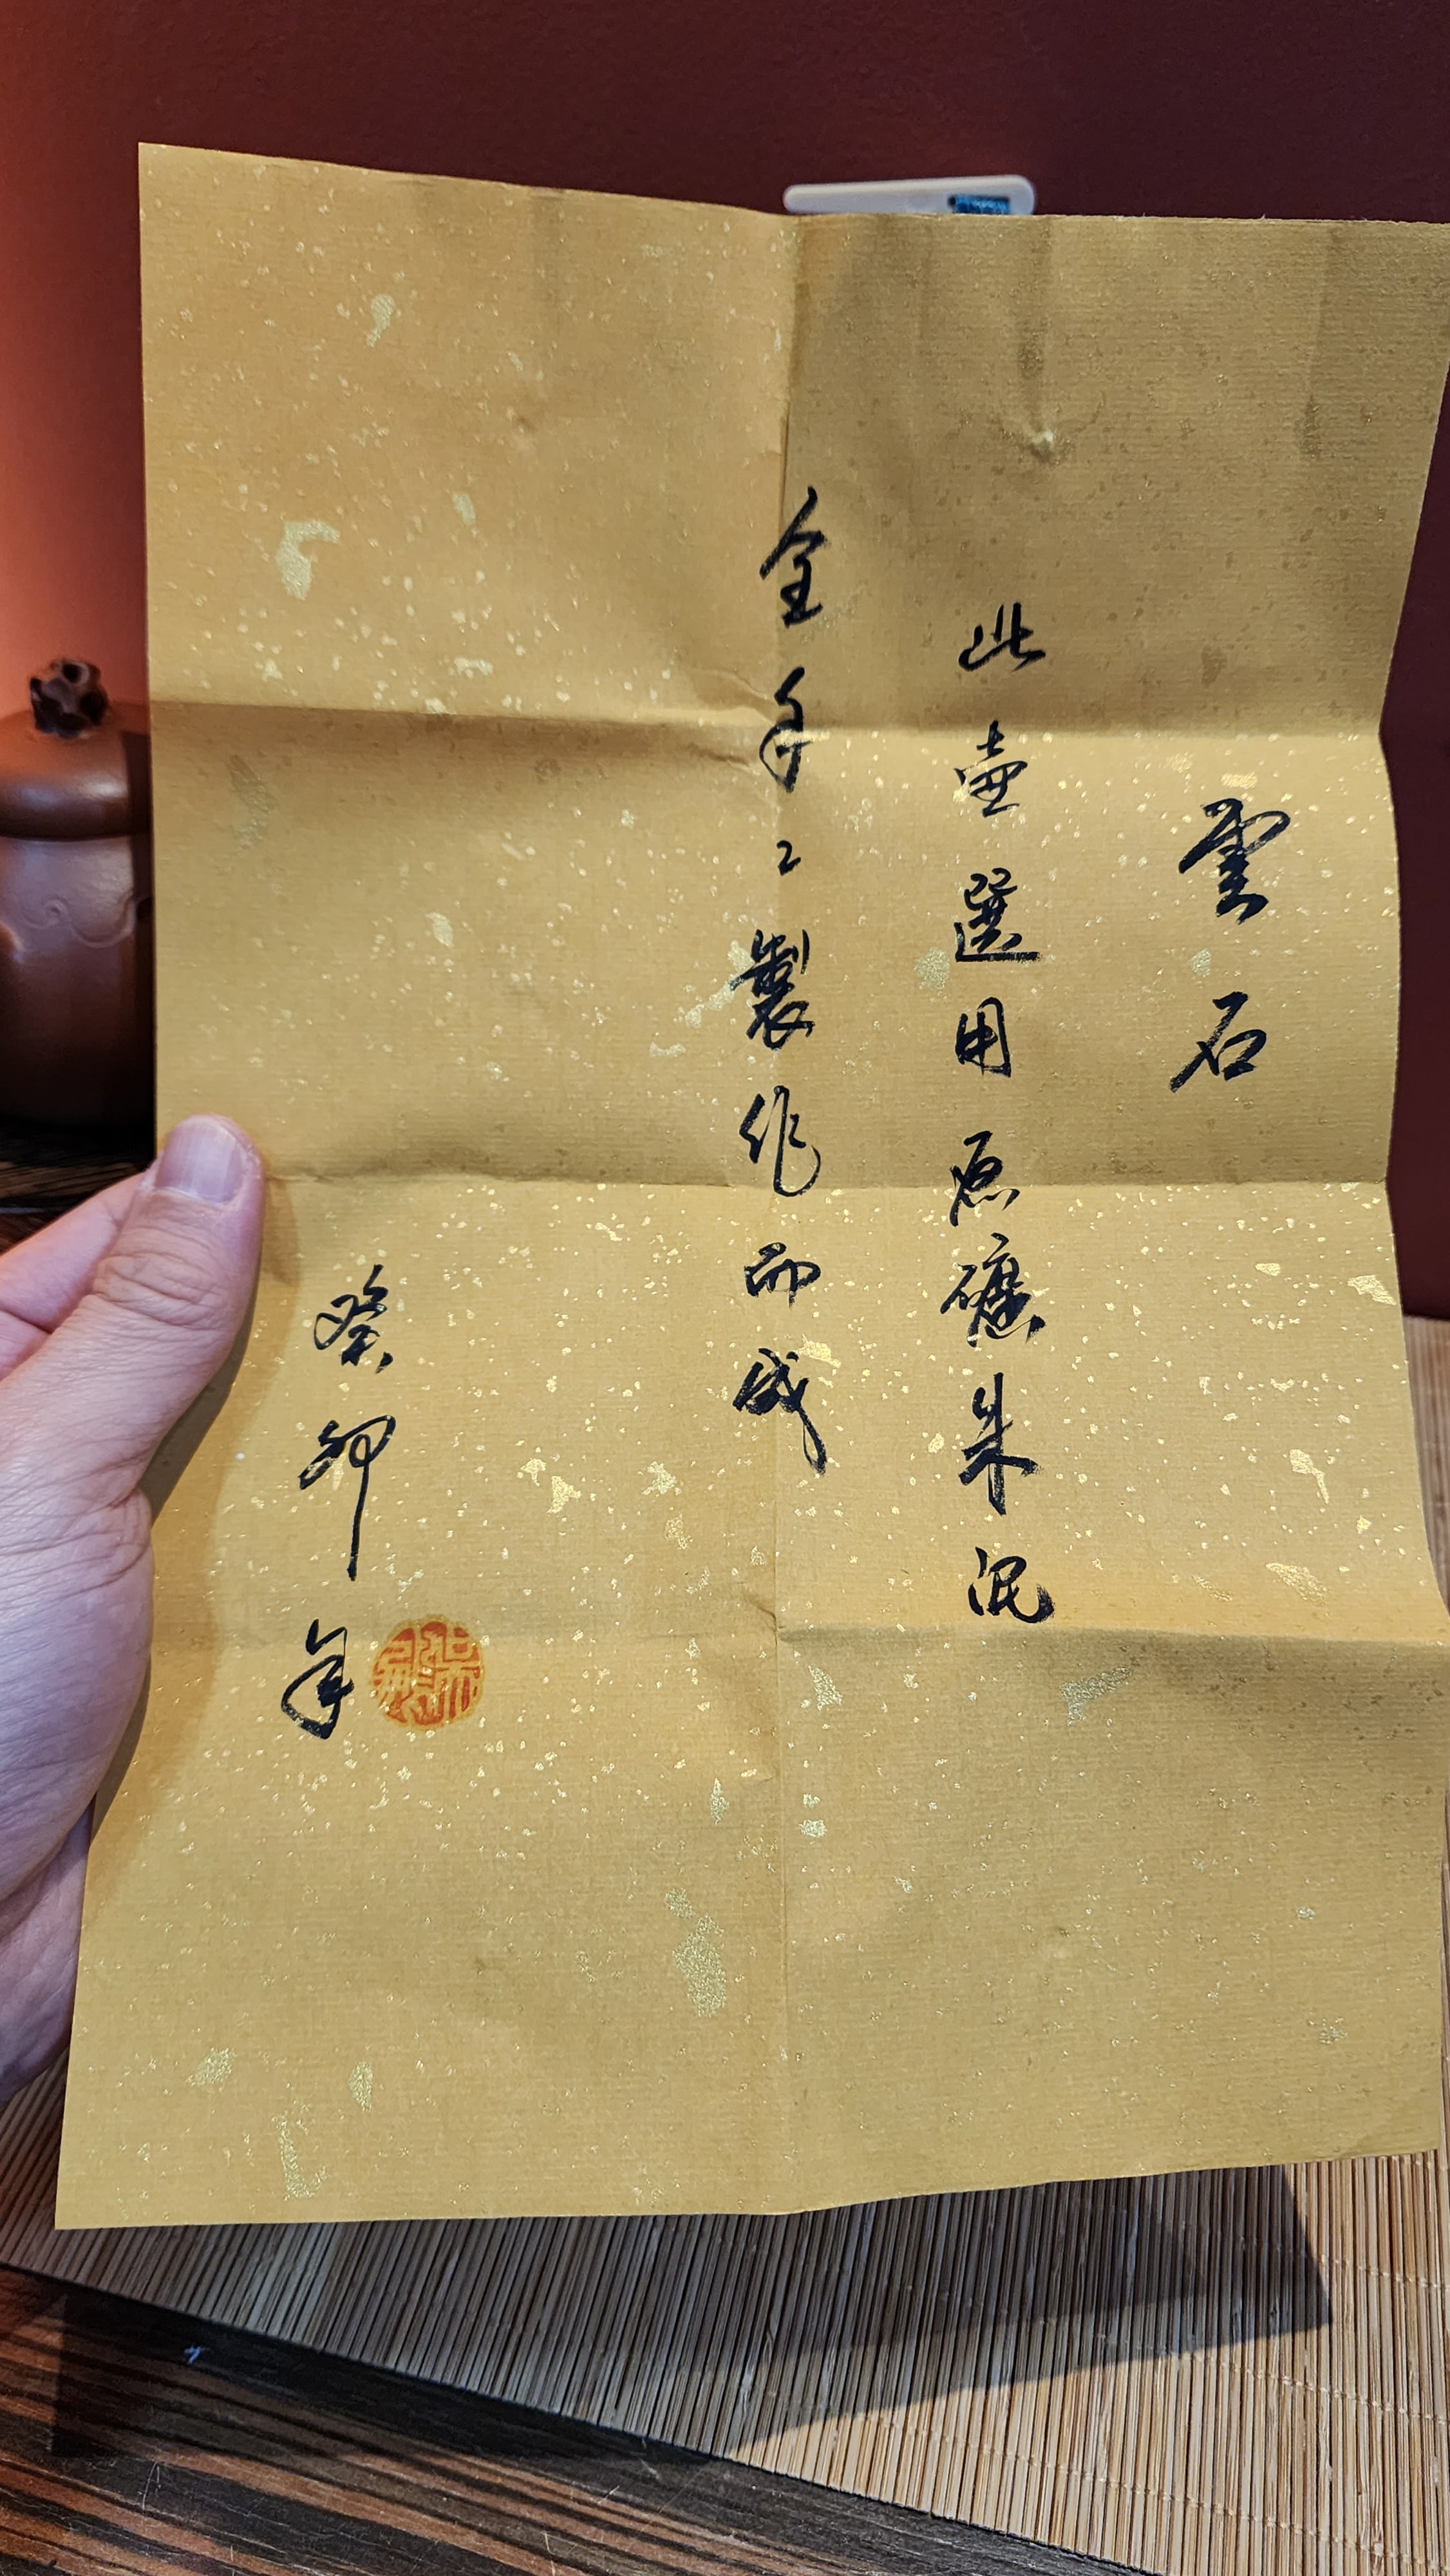 雲石
此壺選用原礦朱泥
全手工製作而成
癸卯年